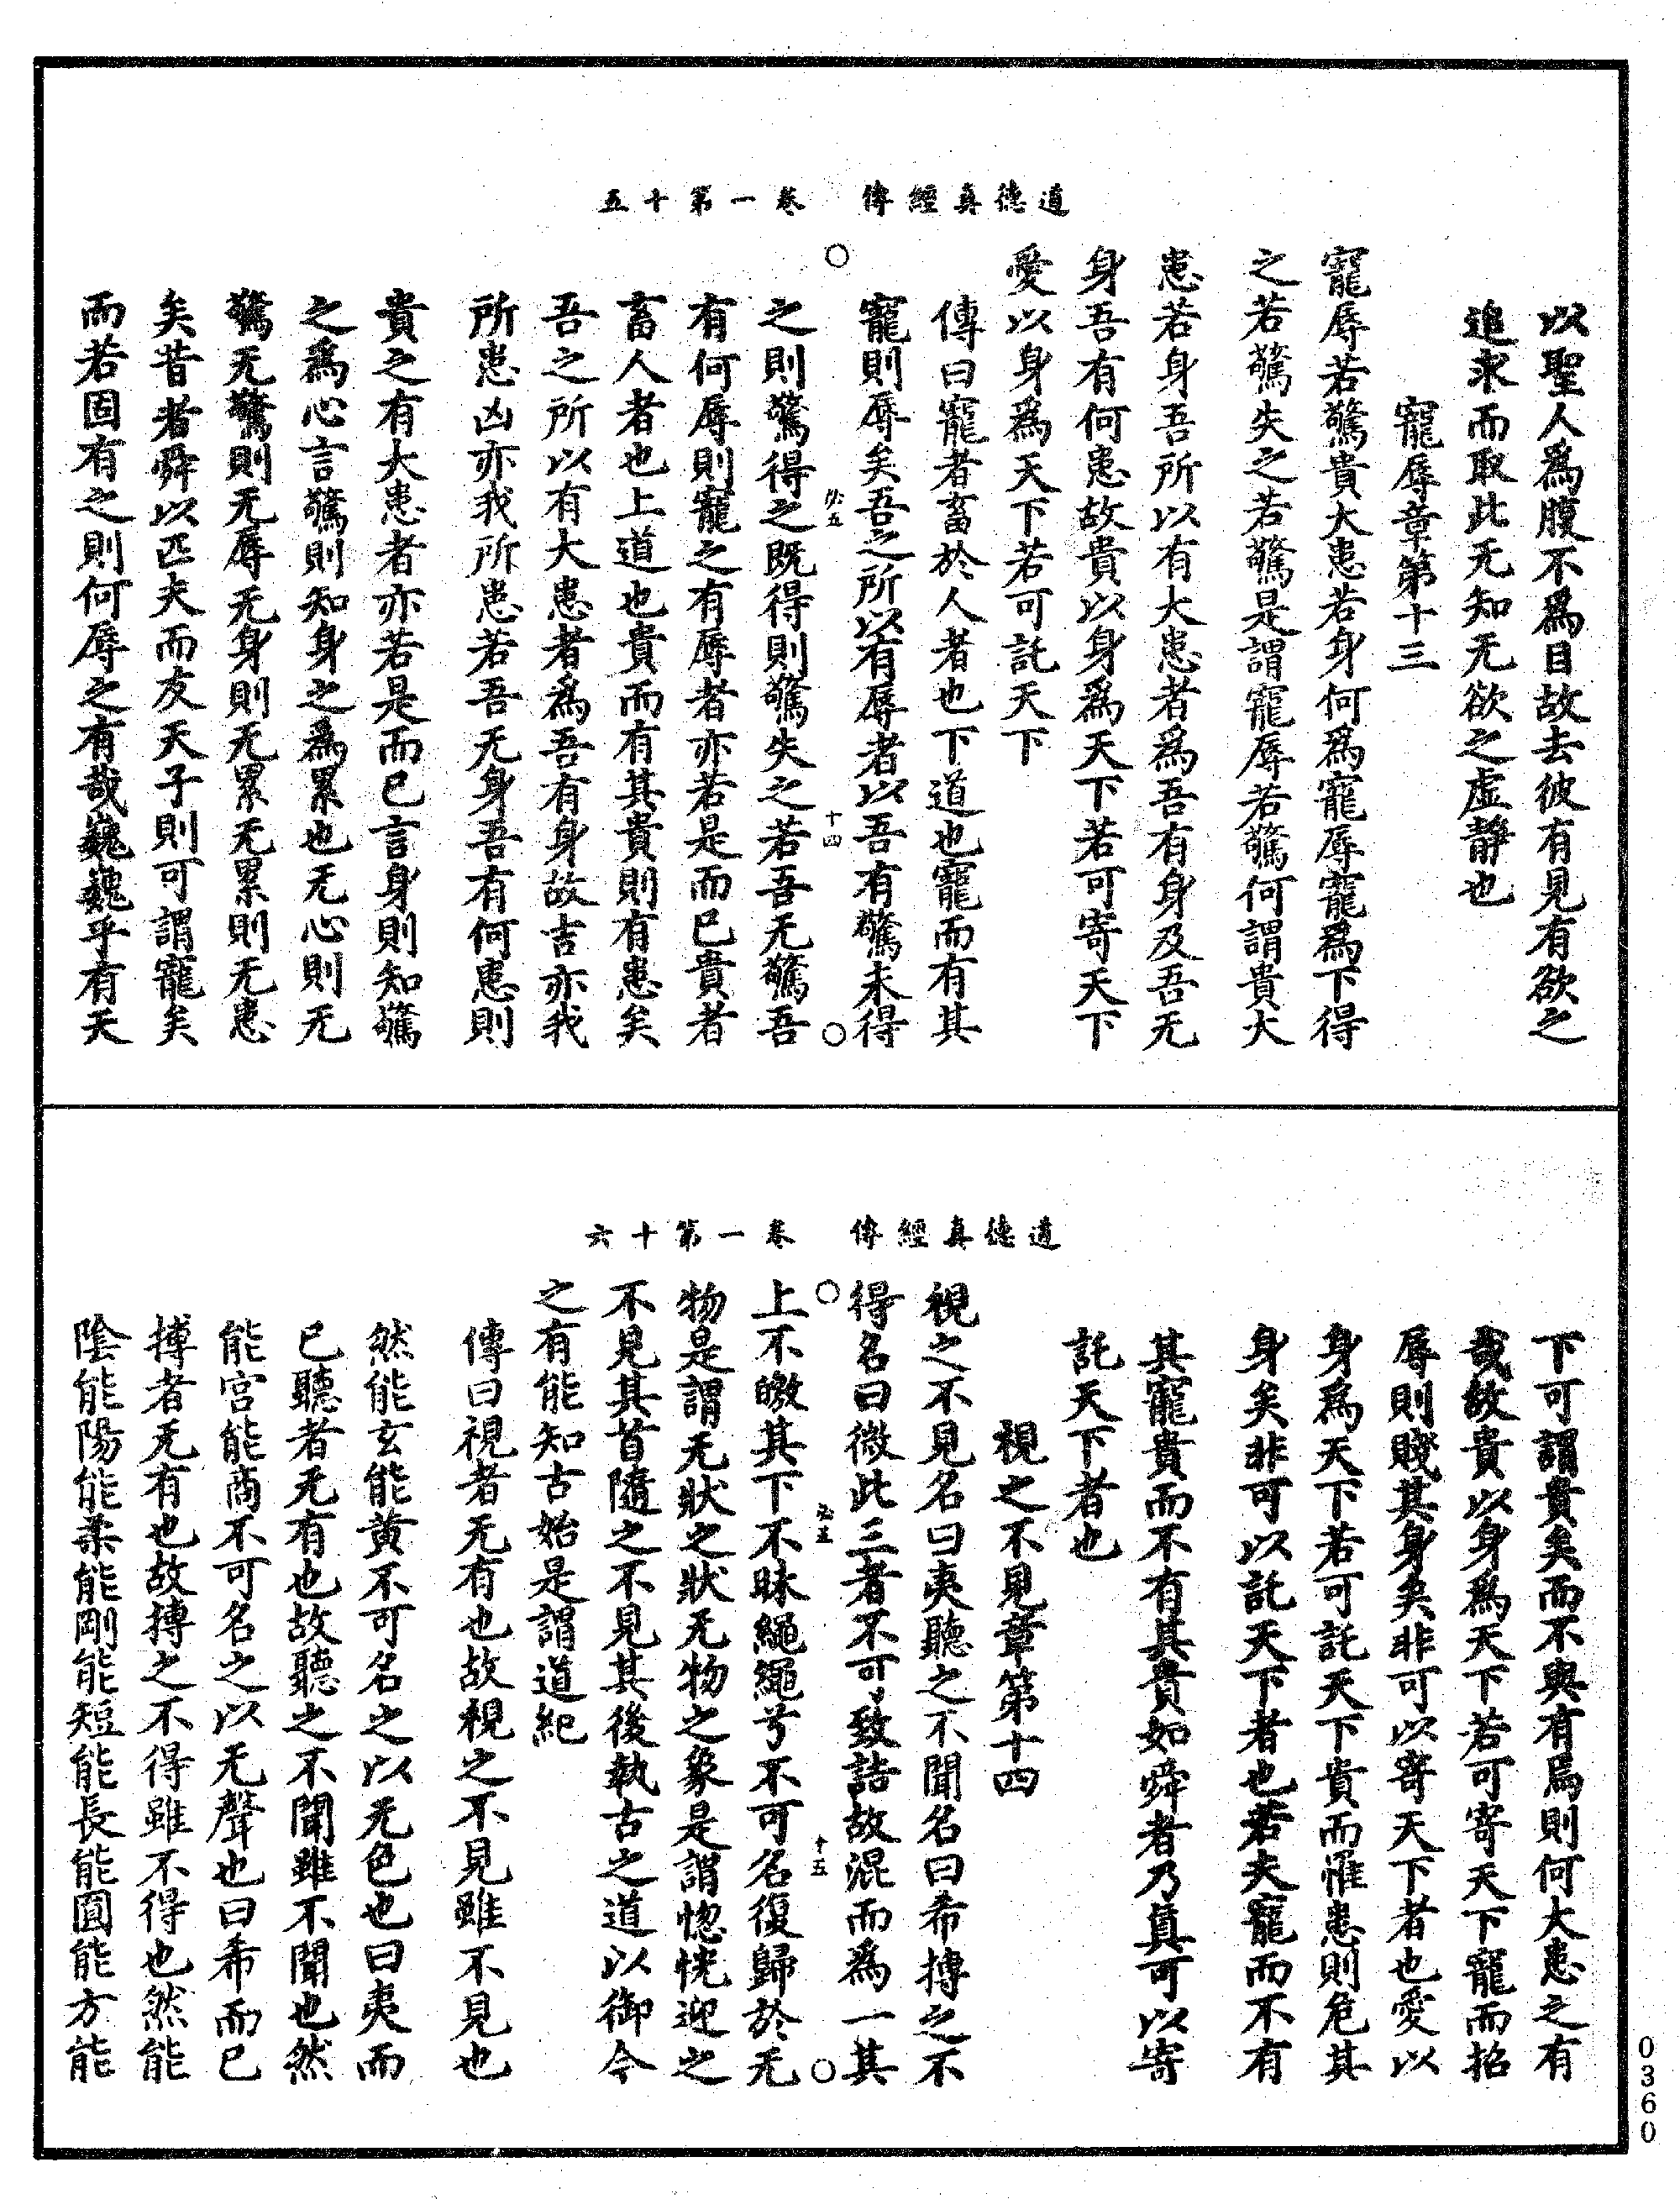 道德真經傳 卷一第十五
以聖人爲腹不爲目故去彼有見有欲之
追求而取此无知无欲之虛靜也
寵辱章第十三
寵辱若驚貴大患若身何爲寵辱寵爲下得
之若驚失之若驚是謂寵辱若驚何謂貴大
患若身吾所以有大患者爲吾有身及吾无
身吾有何患故貴以身爲天下若可寄天下
愛以身爲天下若可託天下
傳曰寵者畜於人者也下道也寵而有其
寵則辱矣吾之所以有辱者以吾有驚未得
必五 十四
之則驚得之既得則驚失之若吾无驚吾
有何辱則寵之有辱者亦若是而已貴者
畜人者也上道也貴而有其貴則有患矣
吾之所以有大患者爲吾有身故吉亦我
所患凶亦我所患若吾无身吾有何患則
貴之有大患者亦若是而已言身則知驚
之爲心言驚則知身之爲累也无心則无
驚无驚則无辱无身則无累无累則无患
矣昔者舜以匹夫而友天子則可謂寵矣
而若固有之則何辱之有哉巍巍乎有天
道德真經傳 卷一第十六
下可謂貴矣而不與有焉則何大患之有
哉故貴以身爲天下若可寄天下寵而招
辱則賤其身矣非可以寄天下者也愛以
身爲天下若可託天下貴而罹患則危其
身矣非可以託天下者也若夫寵而不有
其寵貴而不有其貴如舜者乃眞可以寄
託天下者也
視之不見章第十四
視之不見名曰夷聽之不聞名曰希摶之不
得名曰微此三者不可致詰故混而爲一其
必五 十五
上不皦其下不昧繩繩兮不可名復歸於无
物是謂无狀之狀无物之象是謂惚恍迎之
不見其首隨之不見其後執古之道以御今
之有能知古始是謂道紀
傳曰視者无有也故視之不見雖不見也
然能玄能黄不可名之以无色也曰夷而
已聽者无有也故聽之不聞雖不聞也然
能宮能商不可名之以无聲也曰希而已
摶者无有也故摶之不得雖不得也然能
陰能陽能柔能剛能短能長能圓能方能
0360